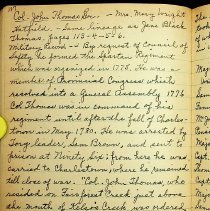 Col. John Thomas Sr. — Mrs. Mary Wright
Hatfield. — Same lineage as Jane Black
Thomas pages 113-4-5&6.
Military Record — By request of Council of
Safety he formed the Spartan Regiment
which was organized in 1775. He was a
member of Provincial Congress which
resolved into a General Assembly 1776
Col Thomas was in command of his
regiment until after the fall of Charles-
town in May 1780. He was arrested by
Tory leader, Sam Brown, and sent to
prison at Ninety Six; from here he was
carried to Charlestown where he remained
till close of war. Col. John Thomas, who
resided on Fair Forest Creek just above
the mouth of Kelso's Creek was ordered